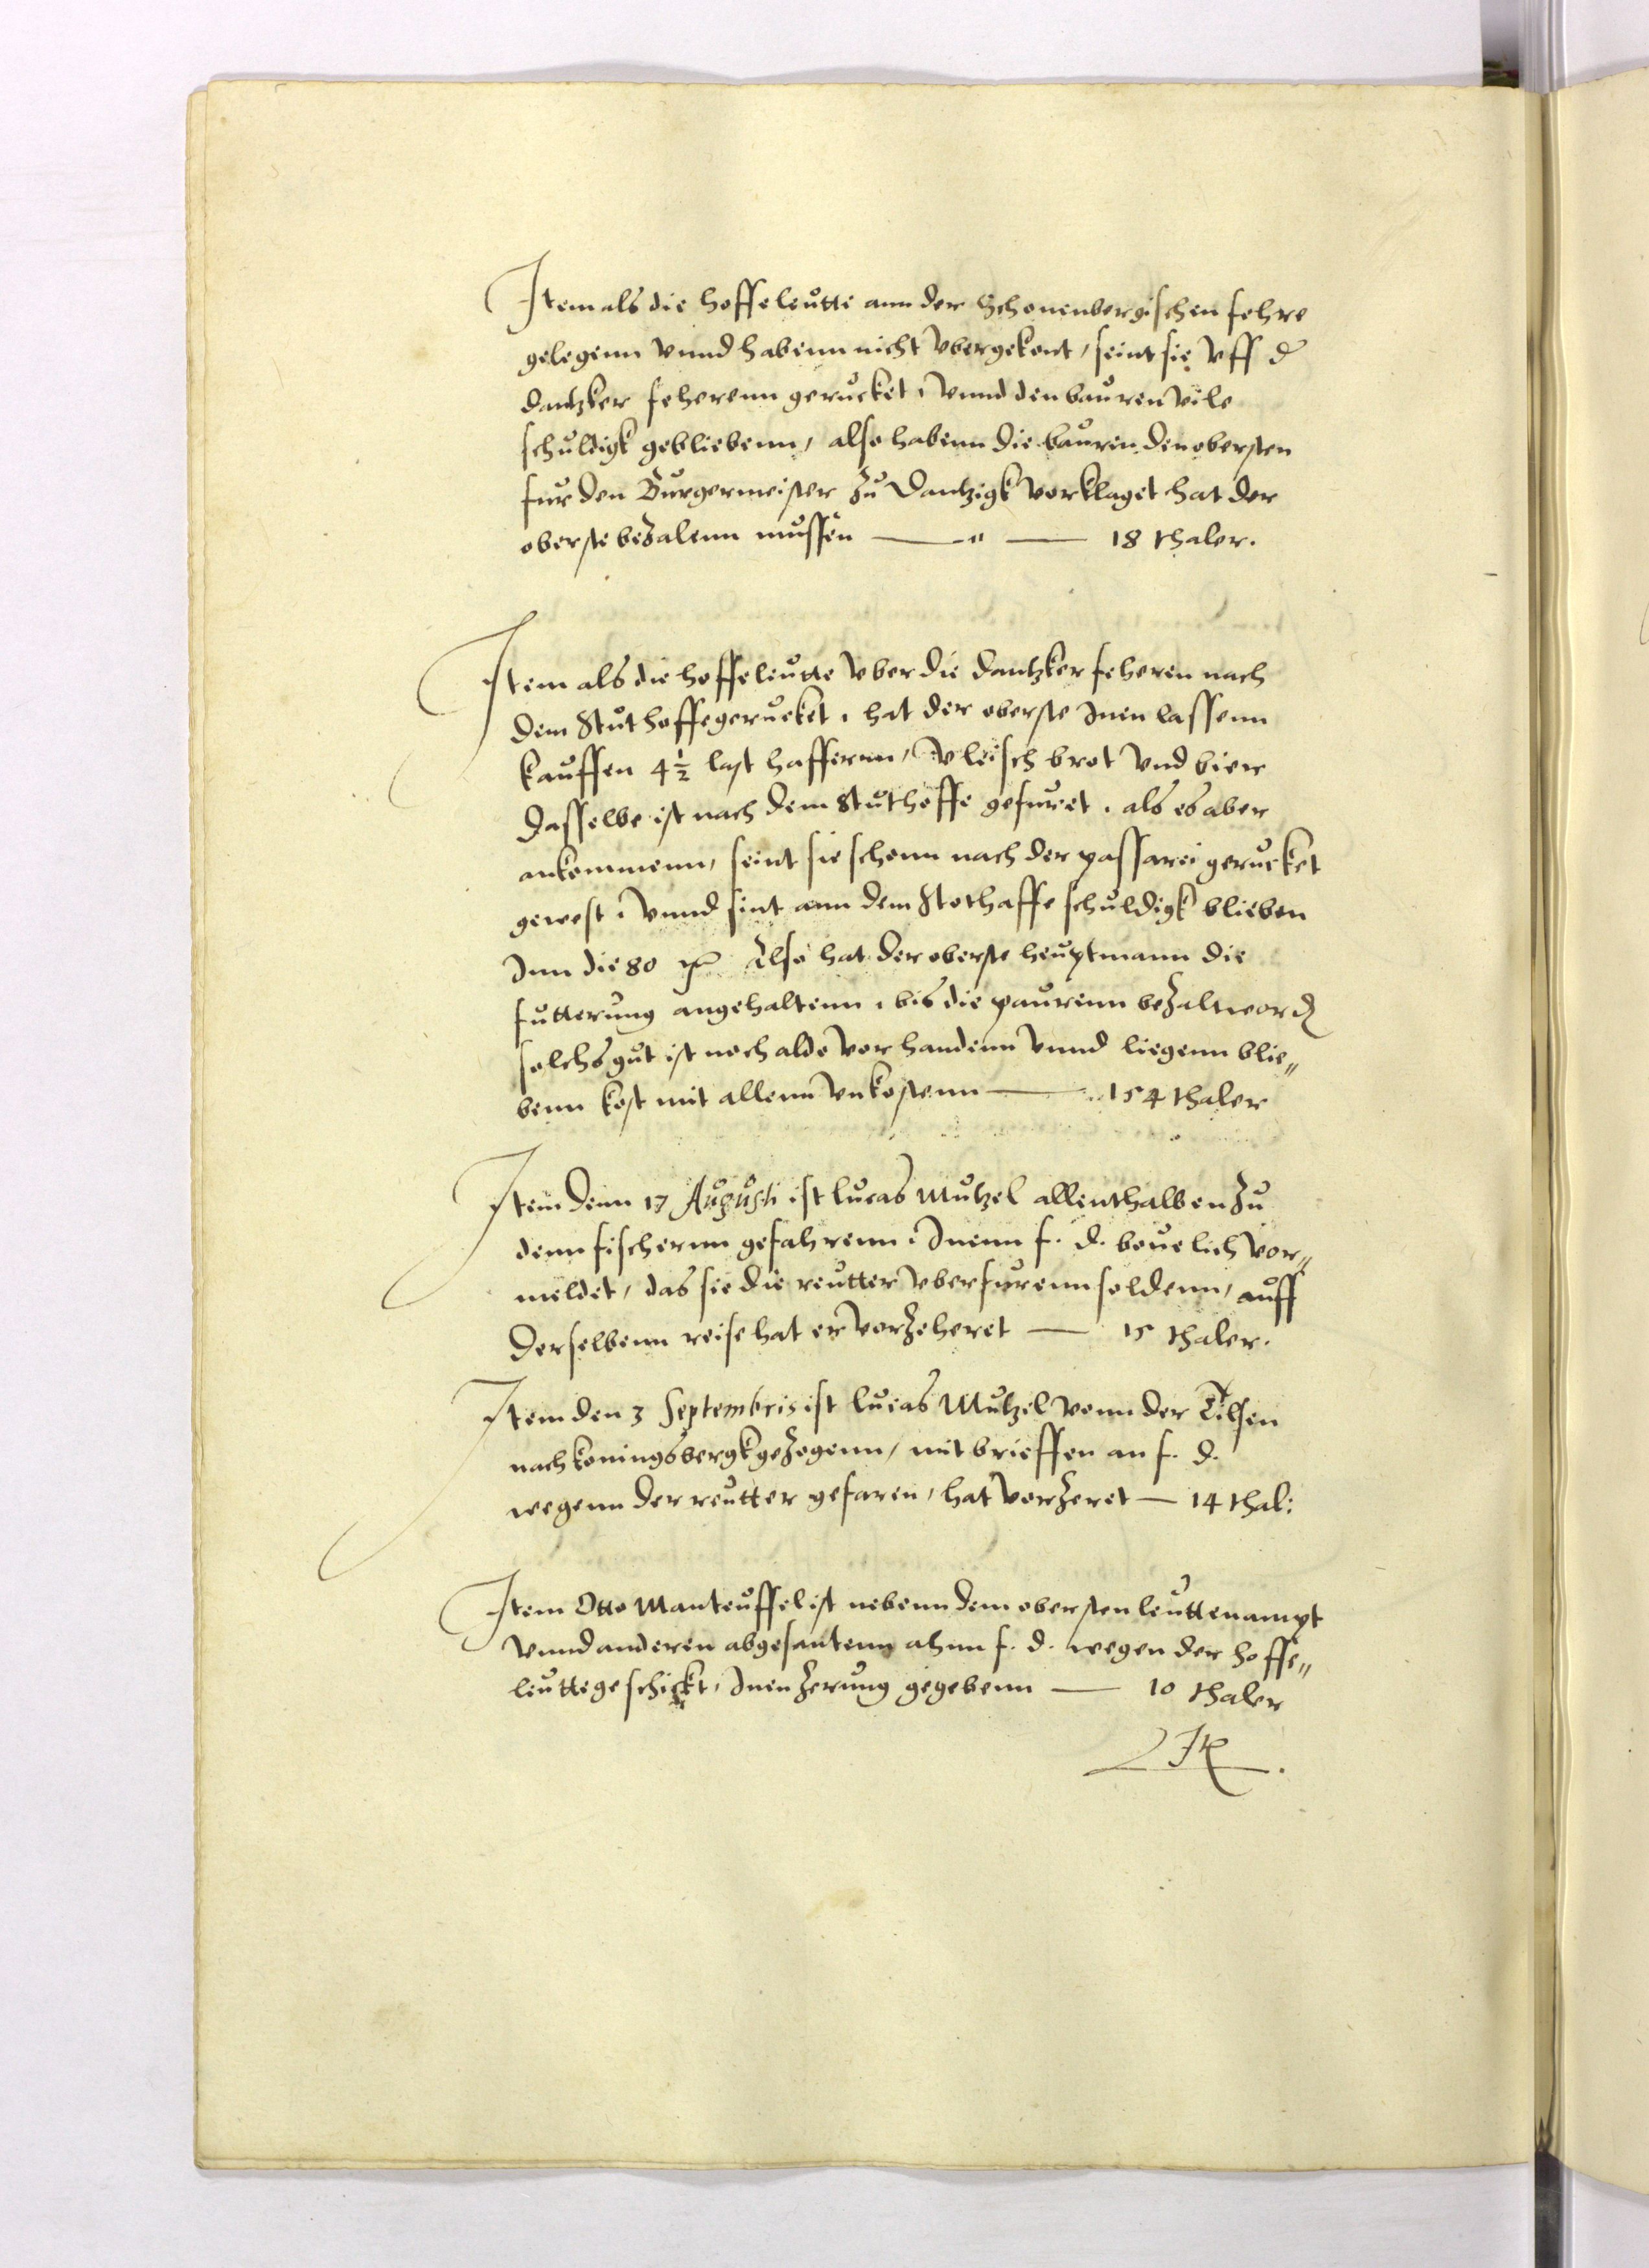 Item als die hoffeleutte ann der Schonenbergischen fehre
gelegenn vnnd habenn nicht vbergekont, seint sie vff d
dantzker feherenn gerucket, vnnd den bauren vile
schuldigk gebliebenn, also habenn die bauren den obersten
fur den Burgermeister zu Dantzigk vorklaget hat der
oberste bezalenn mussen — 18 thaler.
Item als die hoffeleutte vber die dantzker feheren nach
dem Stuthoffe gerucket, hat der oberste Inen lassenn
kauffen 4 1/2 last haffernn, vleisch brot vnd bier
dasselbe ist nach dem Stuthoffe gefuret, als es aber
ankommenn, seint sie schonn nach der passarei gerucket
gewest, vnnd sint ann dem Stothaffe schuldigk blieben
Inn die 80 Also hat der oberste heuptmann die
futterung angehaltenn, bis die paurenn bezalt word
solchs gut ist noch aldo vorhandenn vnnd liegenn blie„
benn kost mit allenn vnkostenn — 154 thaler
Item denn 17 Augusti ist lucas Mutzel allenthalben zu
denn fischernn gefahrenn, Inenn f. d. beuelich vor„
meldet, das sie die reutter vberfurenn soldenn, auff
derselbenn reise hat er vorzeheret — 15 thaler.
Item den 3 Septembris ist lucas Mutzel vonn der Tilsen
nach koningsbergk gezogenn, mit brieffen an f. d.
wegenn der reutter gefaren, hat vorzeret — 14 thal:
Item Otto Manteuffel ist nebenn dem obersten leuttenampt
vnnd anderen abgesantenn ahnn f. d. wegen der hoffe„
leutte geschickt, Inen zerung gegebenn — 10 thaler